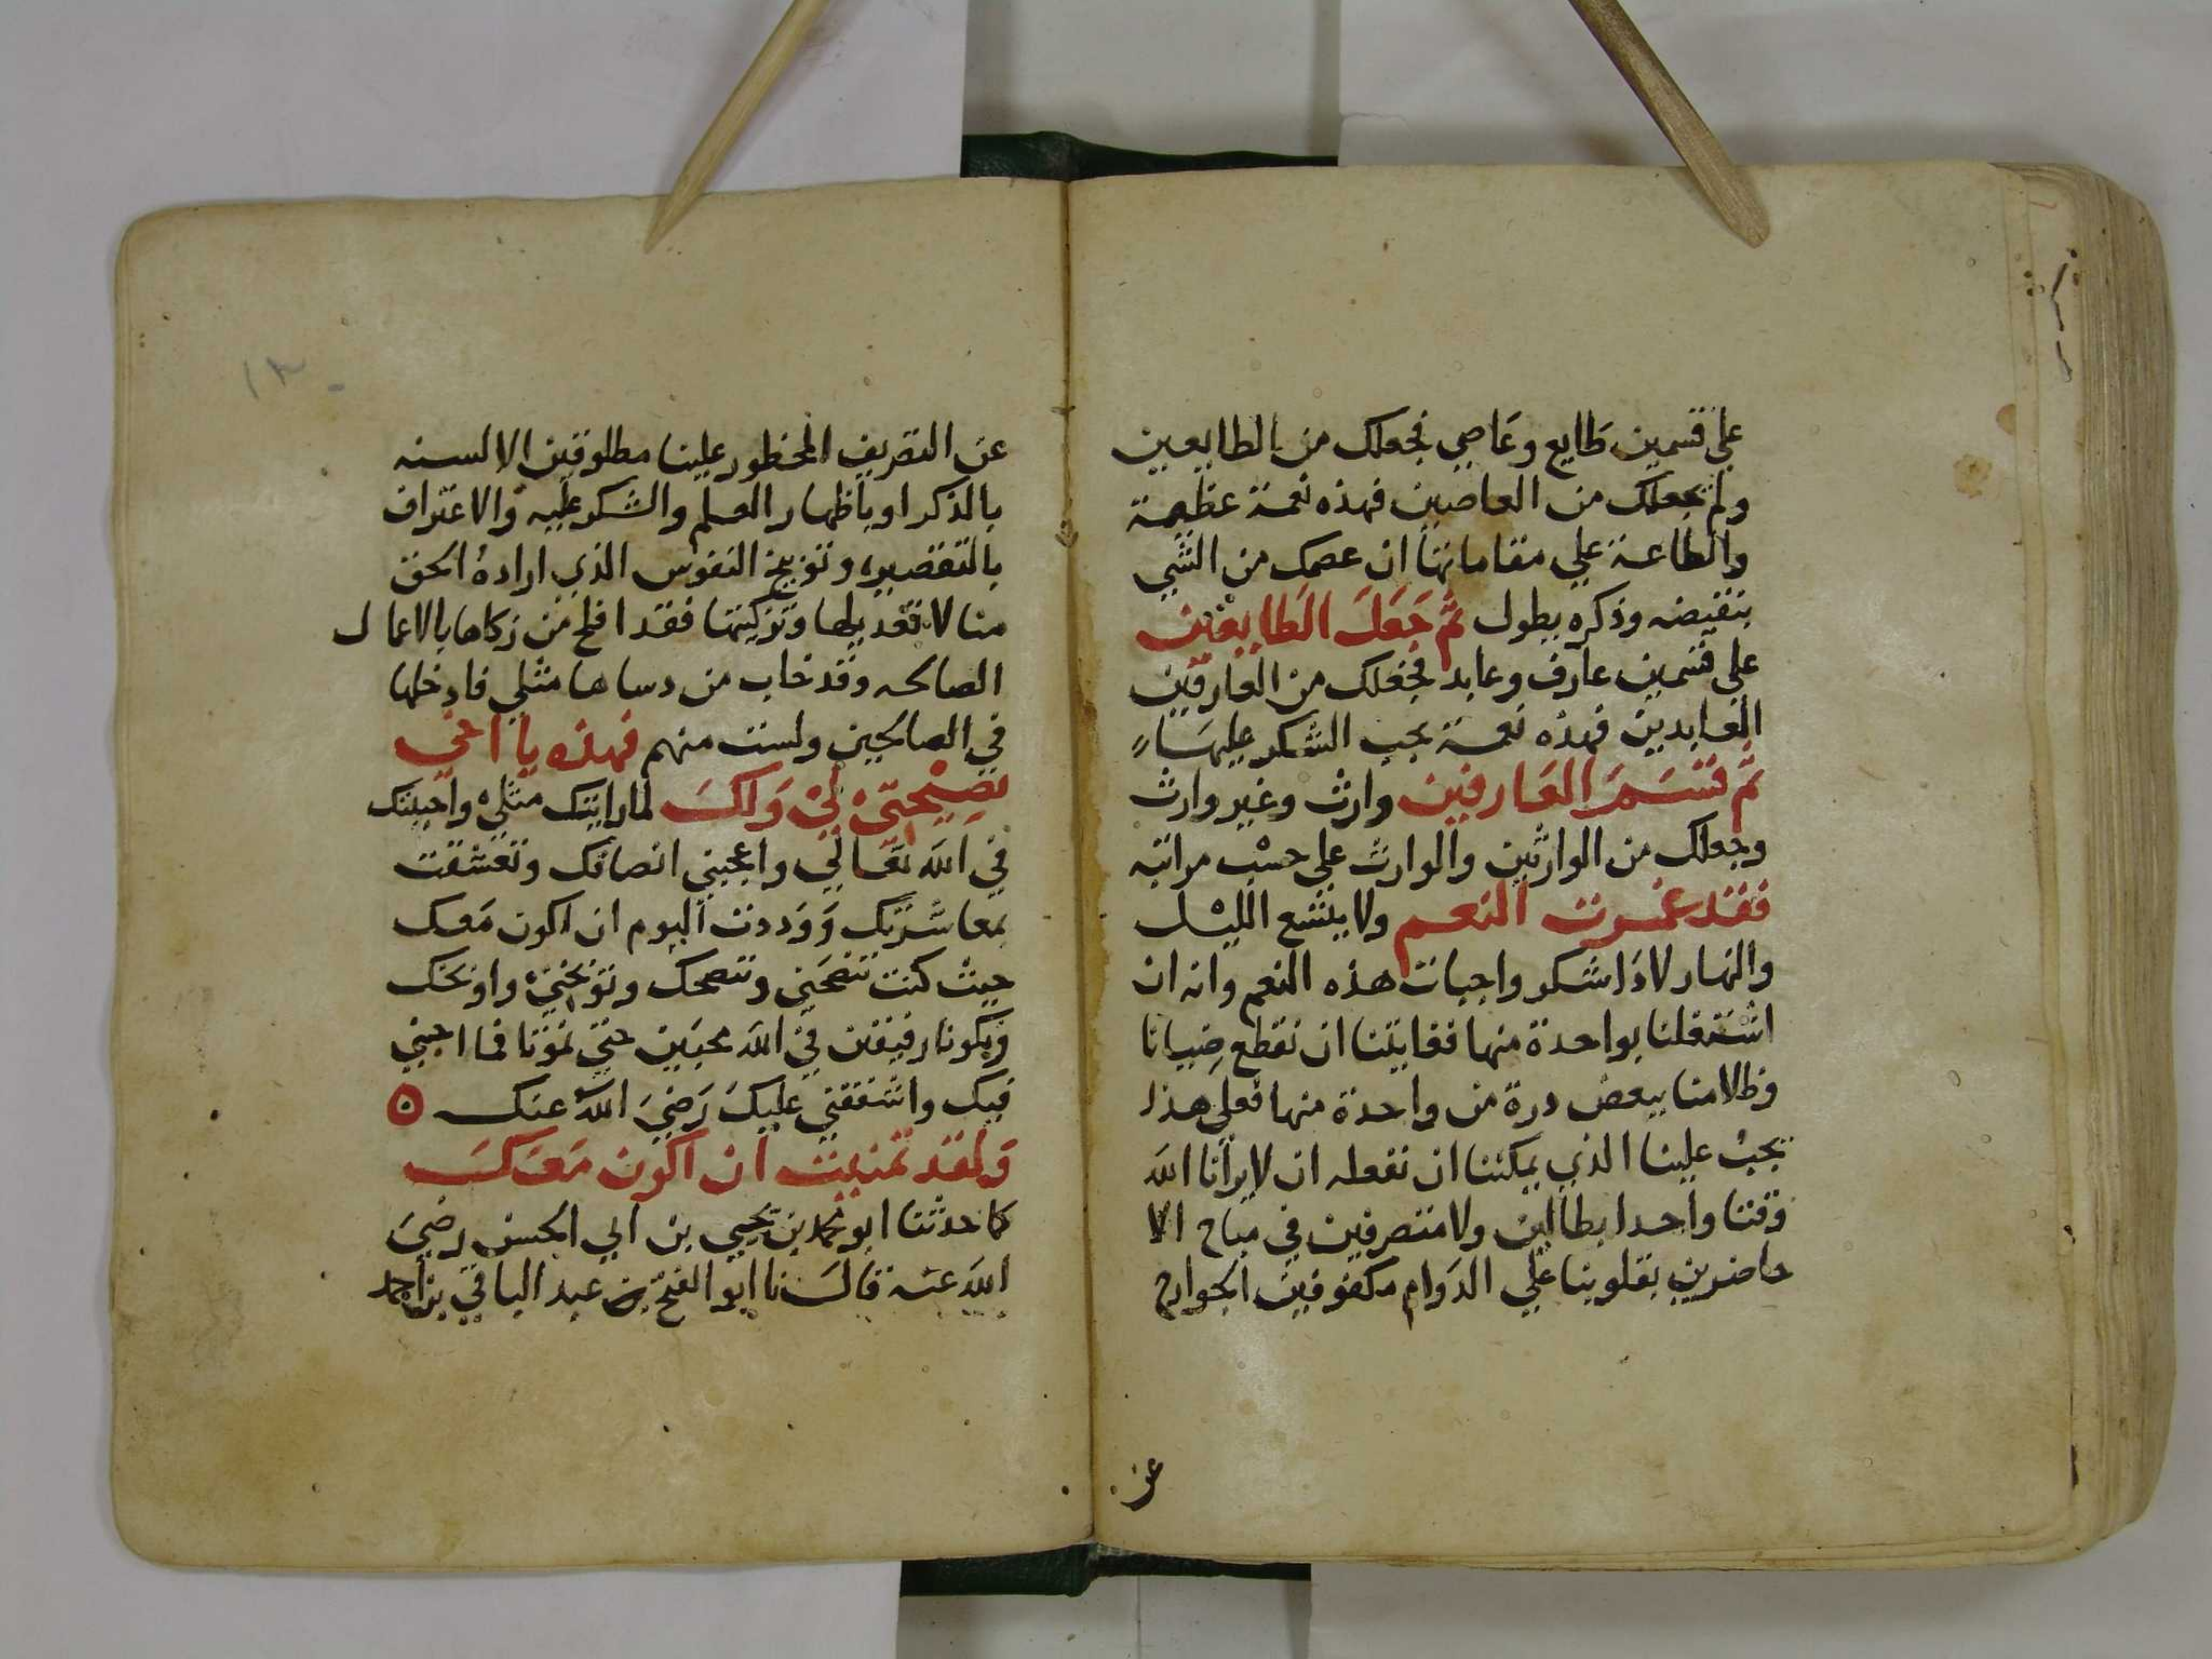 علي قسمين طايع وعاصي فجعلك من الطايعين
ولم يجعلك من العاصين فهذه نعمة عظيمة
والطاعة علي مقاماتها ان عصمك من الشي
بنقيضه وذكره يطول ثم جَعَلَ الطَايعين
علي قسمين عارف وعابد فجعلك من العارفين
العابدين فهذه نعمة يجب الشكر عليها
ثم قسم العارفين وارث وغير وارث
وجعلك من الوارثين والوارث علي حسب مراتبه
فقد غمرت النعم ولا يتسع الليل
والنهار لاداشكر واجبات هذه النعم وانه ان
اشتغلنا بواحدة منها فغايتنا ان نقطع ضيانا
وظلامنا ببعض درة من واحدة منها فعلي هذا
يجب علينا الذي يمكننا ان نفعله ان لا يرانا الله
وقتا واحدا بطالين ولا متصرفين في مباح الا
حاضرين بقلوبنا علي الدوام مكفوفين الجوارح
عن
١٣
عن التصريف المحظور علينا مطلوقين الالسنه
بالذكر او باظهار العلم والشكر عليه والاعتراف
بالتقصير وتوبيخ النفوس الذي اراده الحق
منا لا تعديلها وتزكيتها فقد افلح من زكاها بالاعمال
الصالحه وقد خاب من دساها مثلي فادخلها
في الصالحين ولست منهم فهذه يا اخي
نصيحتي لي ولك لما رايتك مثلي واحببتك
في الله تعالي واعجبني انصافك وتعشقت
بمعاشرتك ووددت اليوم ان اكون معك
حيث كنت تنصحني وننصحك وتوبخني واوبخك
ويكونا رفيقين في الله محبين حتي نموتا فما احبني
فيك واشفقني عليك رَضي الله عنك ه
ولقد تمنيت ان اكون معك
كما حدثنا ابو محمد بن يحيي بن ابي الحسن رضيَ
الله عنه قال نا ابو الفتح بن عبد الباقي بن احمد